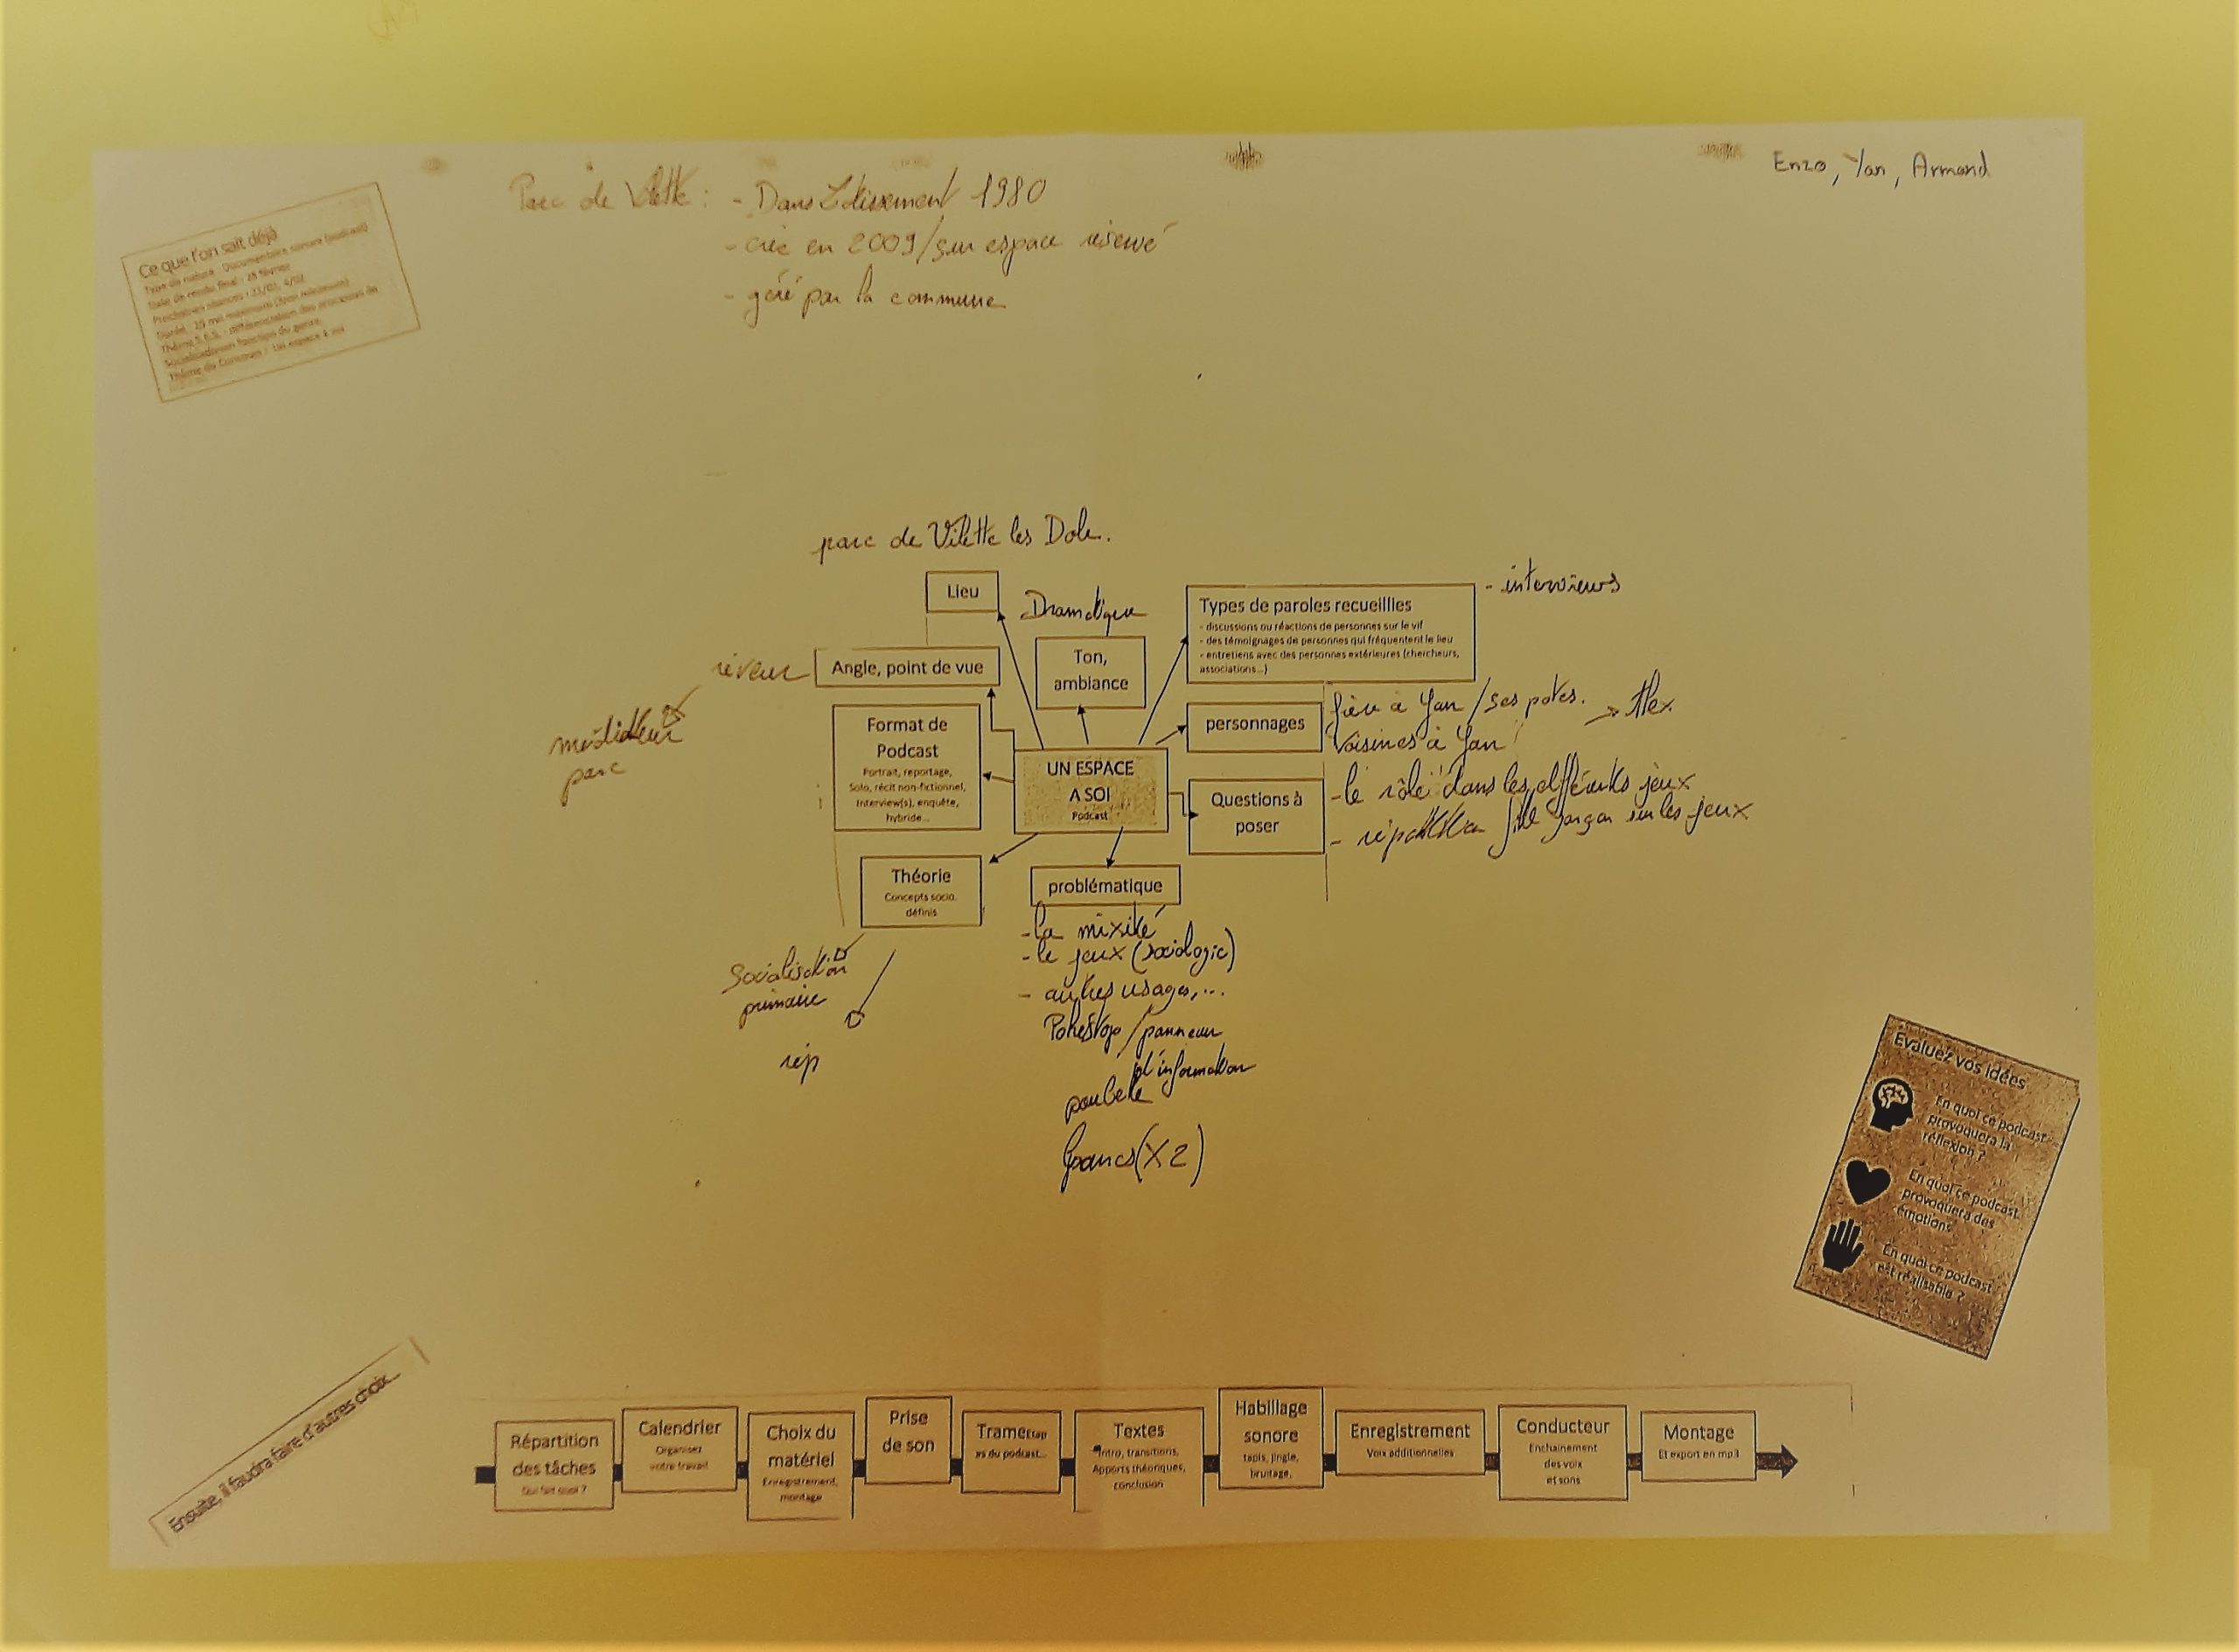 Enzo, Yan, Armand
Parc de Vilette : - Dans Lotissement 1980
- crée en 2009/sur espace réservé
- géré par la commune
Ce que l'on sait déjà
Type de nature : Documentaire sonore (podcast)
Date de rendu final : 28 février
Prochaines séances :
Durée :
Thème S.E.S. : différenciation des processus de
Socialisation en fonction du genre
Thème du Concours : Un espace à soi
parc de Vilette les Dole.
Lieu
Dramatique
Ton,
ambiance
Types de paroles recueillies
- discussions ou réactions de personnes sur le vif
- des témoignages de personnes qui fréquentent le lieu
- entretiens avec des personnes extérieures (chercheurs,
associations...)
- interviews
rêveur
Angle, point de vue
médiateur
parc
Format de
Podcast
Portrait, reportage,
Solo, récit non-fictionnel,
Interview(s), enquête,
hybride...
UN ESPACE
A SOI
Podcast
personnages
frère à Yan / ses potes. -> Alex.
Voisines à Yan
Questions à
poser
- le rôle dans les différents jeux
- répartition fille garçon sur les jeux
Théorie
Concepts socio.
définis
Socialisation
primaire
rép
problématique
- la mixité
- le jeux (sociologie)
- autres usages,...
Pokéstop / panneau
d'information
poubelle
bancs (X2)
Evaluez vos idées
En quoi ce podcast
provoquera la
réflexion ?
En quoi ce podcast
provoquera des
émotions
En quoi ce podcast
est réalisable ?
Ensuite, il faudra faire d'autres choix...
Répartition
des tâches
Qui fait quoi ?
Calendrier
Organisez
votre travail
Choix du
matériel
Enregistrement,
montage
Prise
de son
Trame Etap
es du podcast...
Textes
Intro, transitions,
Apports théoriques,
conclusion
Habillage
sonore
tapis, jingle,
bruitage,
Enregistrement
Voix additionnelles
Conducteur
Enchainement
des voix
et sons
Montage
Et export en mp3